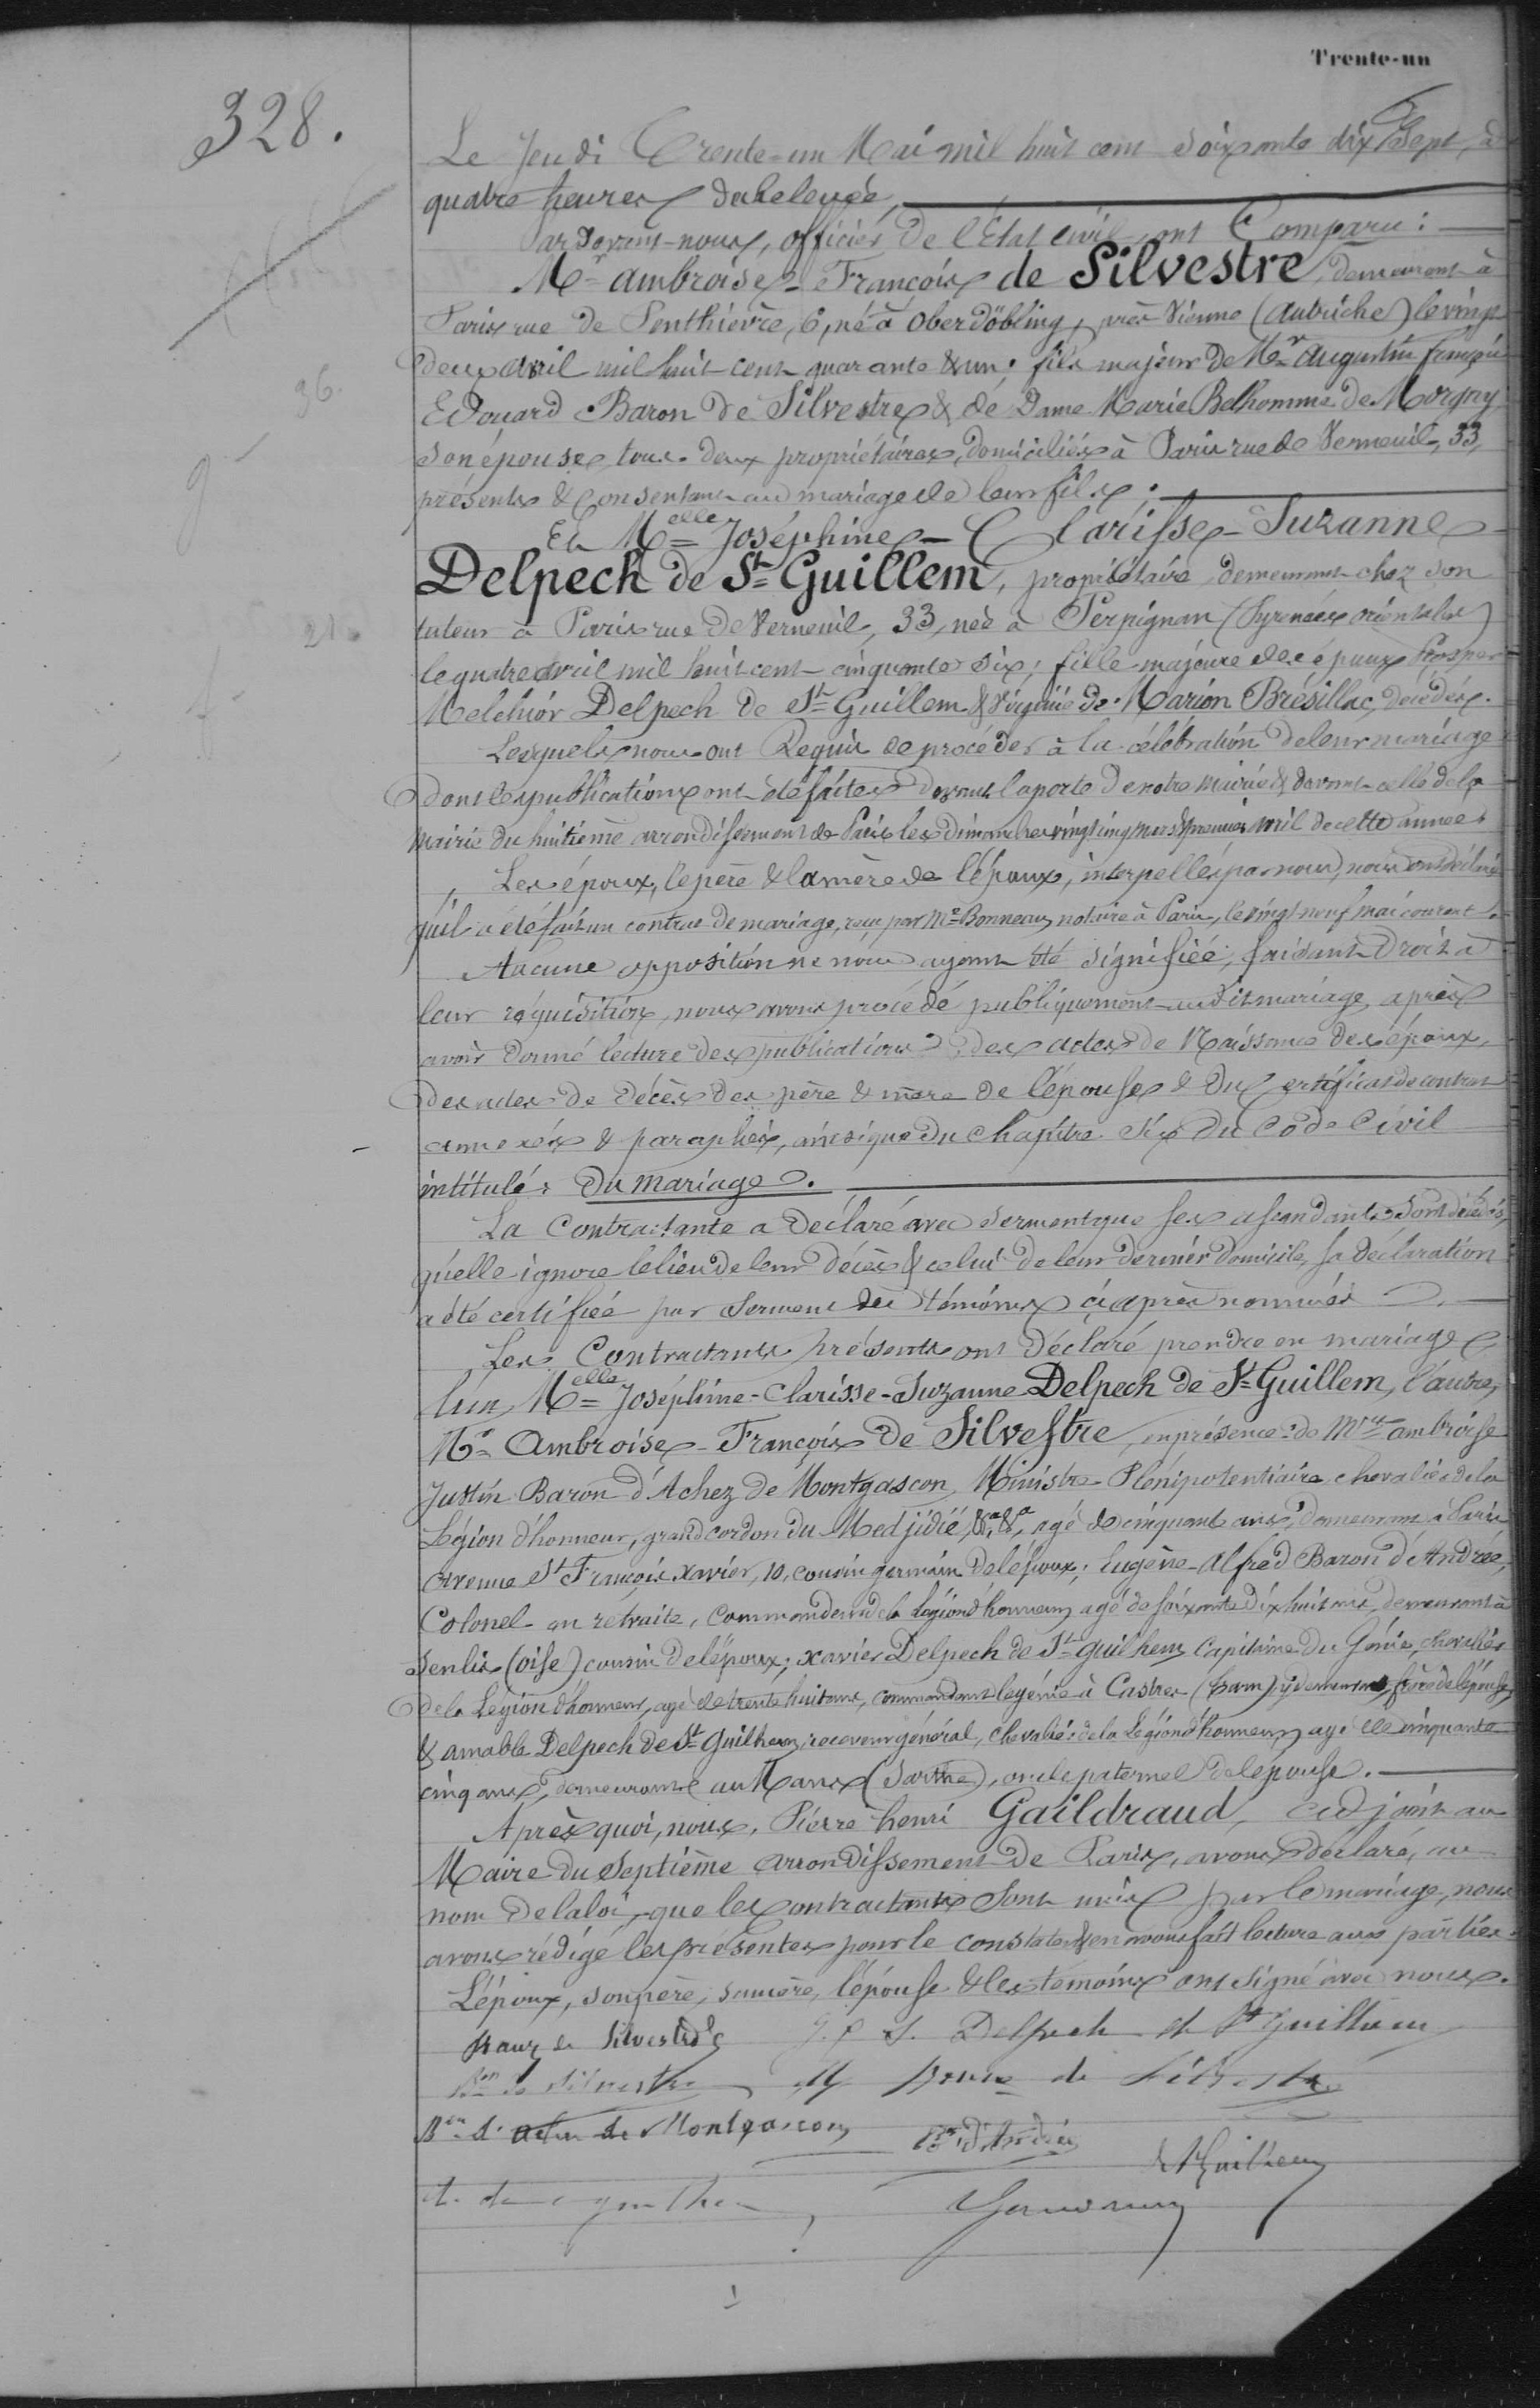 Trente-un
328.
Le Jeudi Trente-un Mai mil huit cent soixante dix Sept, à
quatre heures de relevée,
Par devant-nous, officier de l'État civil, ont Comparu :
Mr Ambroise-François de Silvestre, demeurant à
Paris rue de Penthièvre, 6, né à Oberdöbling, près Vienne (Autriche) le vingt
deux avril mil huit-cent quarante & un ; fils majeur de Mr Augustin françois
Edouard Baron de Silvestre & de Dame Marie Belhomme de Morgny
son épouse, tous-deux propriétaires, domiciliés à Paris rue de Verneuil, 33,
présents & Consentant au mariage de leur fils ;
36.
Et Melle Joséphine-Clarisse-Suzanne
Delpech de St Guillem, propriétaire, demeurant chez son
tuteur à Paris rue de Verneuil, 33, née à Perpignan (Pyrenées orientales)
21.
le quatre avril mil huit cent-cinquante six ; fille majeure des époux Prosper
Melchior Delpech de St Guillem & Virginie de Marion Brésillac, décédés.
Lesquels nous ont Requis de procéder à la célébration de leur mariage
dont les publications ont été faites devant la porte de notre mairie & devant celle de la
mairie du huitième arrondissement de Paris les dimanches vingt cinq mars & premier avril de cette année.
Les époux, le père & la mère de l'époux, interpellés par nous, nous ont déclaré
qu'il a été fait un contrat de mariage, reçu par Me Bonneau, notaire à Paris, le vingt neuf mai courant.
Aucune opposition ne nous ayant été signifiée, faisant droit à
leur réquisition, nous avons procédé publiquement audit mariage, après
avoir donné lecture des publications, des actes de Naissance des époux,
des actes de décès des père & mère de l'épouse & du Certificat de contrat
annexés & paraphés, ainsi que du chapitre six du Code Civil
intitulé : Du mariage.
La Contractante a déclaré avec serment que ses ascendants sont décédés,
qu'elle ignore le lieu de leur décès & celui de leur dernier domicile, sa déclaration
a été certifiée par serment des témoins ci après nommés.
Les Contractants présents ont déclaré prendre en mariage,
l'un, Melle Joséphine-Clarisse-Suzanne Delpech de St Guillem, l'autre,
Mr Ambroise-François de Silvestre, en présence de Mrs Ambroise
Justin Baron d'Achez de Montgascon, Ministre Plénipotentiaire, chevalier de la
Légion d'honneur, grand cordon du Medjidié, &a, &a, agé de cinquante ans, demeurant à Paris
avenue St François Xavier, 10, cousin germain de l'époux ; Eugène-Alfred Baron d'Andrée,
Colonel en retraite, Commandeur de la Légion d'honneur, agé de soixante dix huit ans, demeurant à
Senlis (oise) cousin de l'époux ; Xavier Delpech de St Guilhem, Capitaine du Génie, chevalier
de la Légion d'honneur, agé de trente huit ans, commandant le génie à Castres (Tarn) y demeurant, frère de l'épouse,
& amable Delpech de St Guilhem, receveur général, chevalier de la Légion d'honneur, agé de cinquante
cinq ans, demeurant au Mans (Sarthe), oncle paternel de l'épouse.
Après quoi, nous, Pierre henri Gaildraud, adjoint au
Maire du Septième arrondissement de Paris, avons déclaré, au
nom de la loi, que les Contractants sont unis par le mariage, nous
avons rédigé les présentes pour le constater & en avons fait lecture aux parties.
L'époux, son père, sa mère, l'épouse & les témoins ont signé avec nous.
Franz de Silvestre J. C. S. Delpech de St Guilhem
Bon de Silvestre Bonne de Silvestre
Bon d'Achez de Montgascon Bon d'Andrée
de St Guilhem